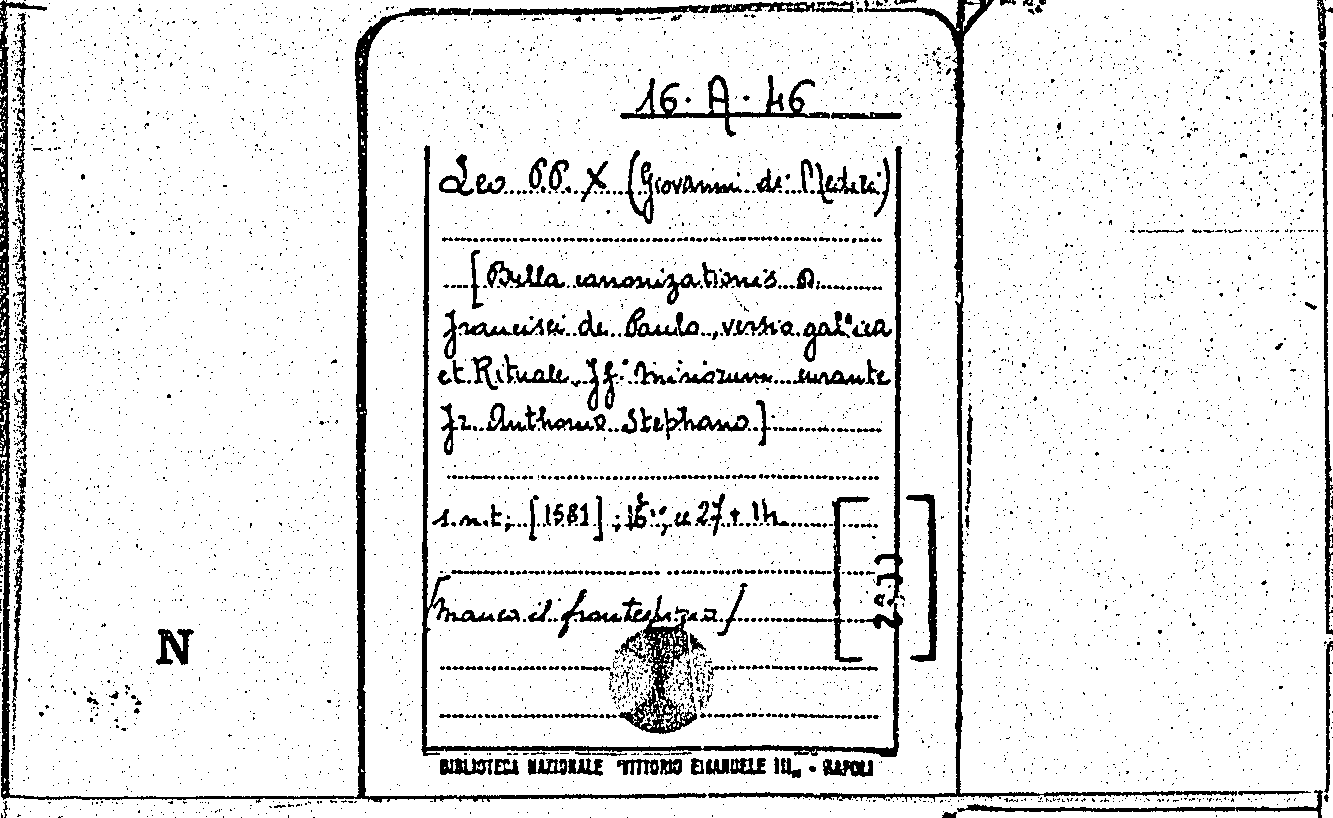 16. A. 46
Leo P.P. X (Giovanni de' Medici)
[Bulla canonizationis S.
Francisci de Paula, versio gallica
et Rituale ff. Minorum curante
fr. Anthonio Stephano]
s.n.t; [1581]; 16°, cc 27 + 1h.
/manca il frontespizio/
N
BIBLIOTECA NAZIONALE "VITTORIO EMANUELE III" - NAPOLI